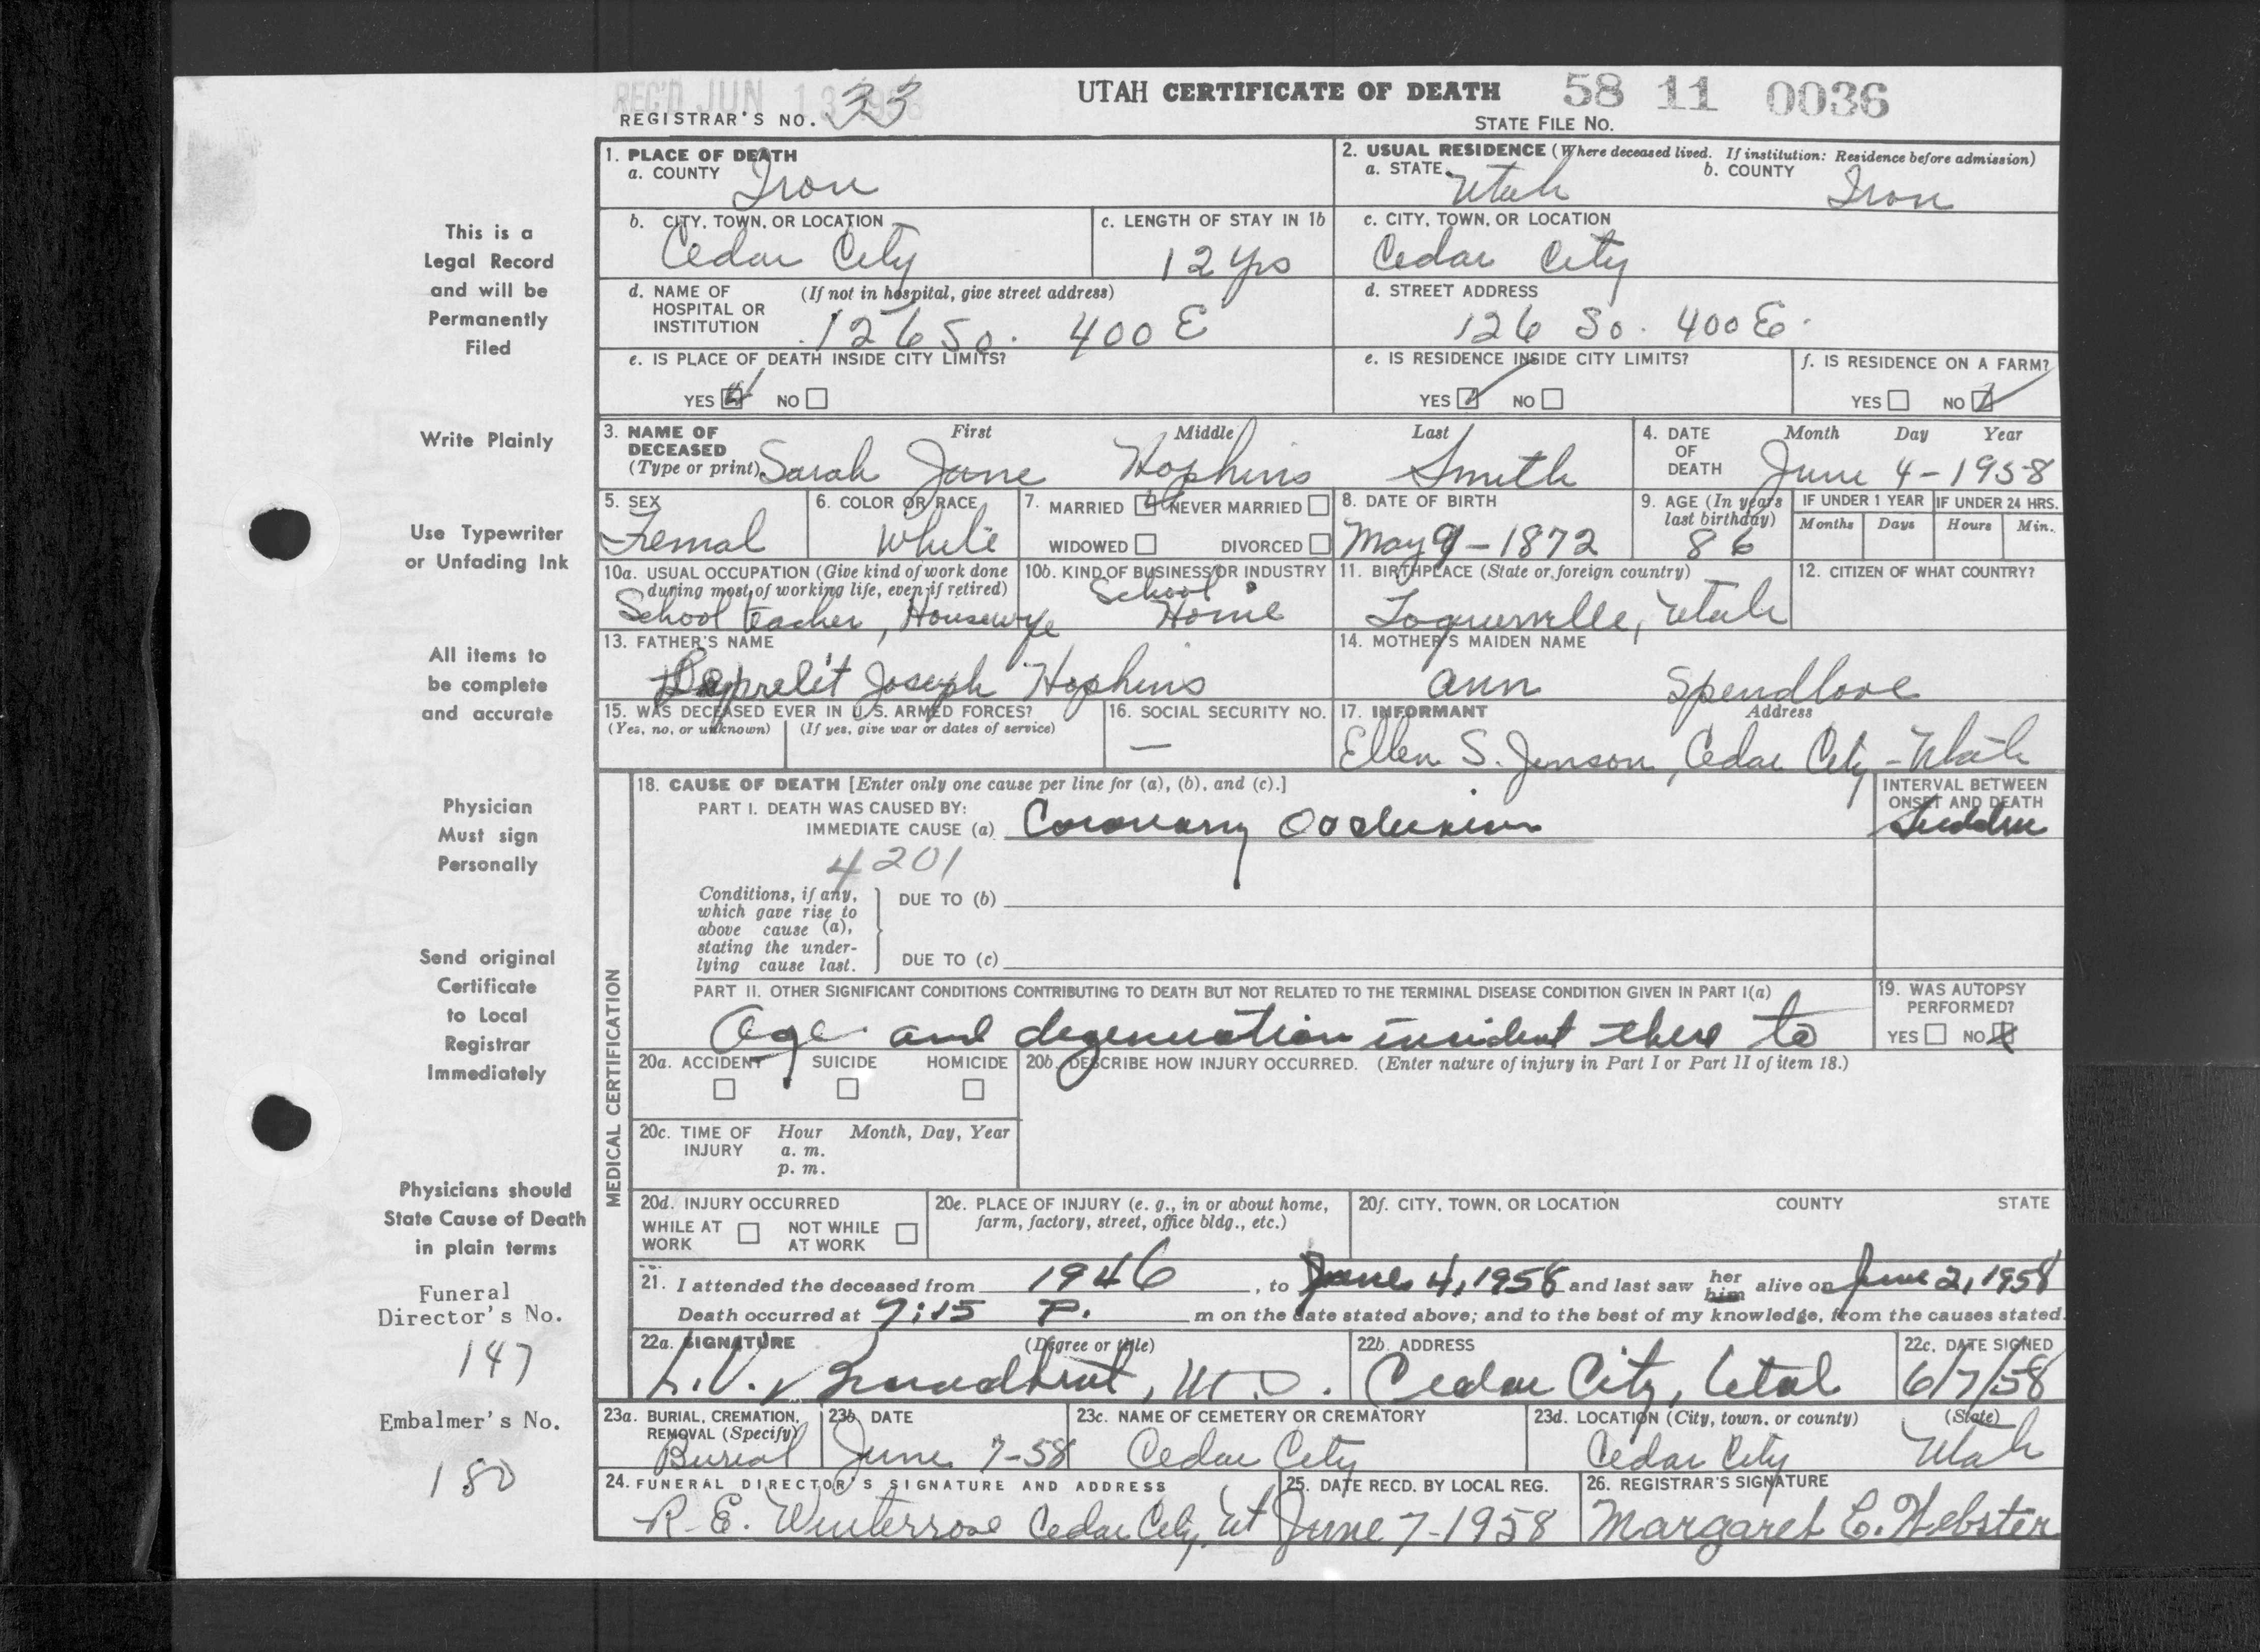 REC'D JUN 13 1958
REGISTRAR'S NO. 33
UTAH CERTIFICATE OF DEATH
58 11 0036
STATE FILE NO.
This is a
Legal Record
and will be
Permanently
Filed
Write Plainly
Use Typewriter
or Unfading Ink
All items to
be complete
and accurate
Physician
Must sign
Personally
Send original
Certificate
to Local
Registrar
Immediately
Physicians should
State Cause of Death
in plain terms
Funeral
Director's No.
147
Embalmer's No.
180
1. PLACE OF DEATH
a. COUNTY Iron
2. USUAL RESIDENCE (Where deceased lived. If institution: Residence before admission)
a. STATE Utah b. COUNTY Iron
b. CITY, TOWN, OR LOCATION
Cedar City
c. LENGTH OF STAY IN 1b
12 yrs
c. CITY, TOWN, OR LOCATION
Cedar City
d. NAME OF HOSPITAL OR INSTITUTION (If not in hospital, give street address)
126 So. 400 E
d. STREET ADDRESS
126 So. 400 E.
e. IS PLACE OF DEATH INSIDE CITY LIMITS?
YES NO
e. IS RESIDENCE INSIDE CITY LIMITS?
YES NO
f. IS RESIDENCE ON A FARM?
YES NO
3. NAME OF DECEASED (Type or print) First Middle Last
Sarah Jane Hopkins Smith
4. DATE OF DEATH Month Day Year
June 4-1958
5. SEX
Femal
6. COLOR OR RACE
White
7. MARRIED NEVER MARRIED
WIDOWED DIVORCED
8. DATE OF BIRTH
May 9-1872
9. AGE (In years last birthday)
86
IF UNDER 1 YEAR
Months Days
IF UNDER 24 HRS.
Hours Min.
10a. USUAL OCCUPATION (Give kind of work done during most of working life, even if retired)
School teacher, Housewife
10b. KIND OF BUSINESS OR INDUSTRY
School
Home
11. BIRTHPLACE (State or foreign country)
Toquerville, Utah
12. CITIZEN OF WHAT COUNTRY?
13. FATHER'S NAME
Joseph Hopkins
14. MOTHER'S MAIDEN NAME
Ann Spendlove
15. WAS DECEASED EVER IN U. S. ARMED FORCES?
(Yes, no, or unknown) (If yes, give war or dates of service)
16. SOCIAL SECURITY NO.
—
17. INFORMANT Address
Ellen S. Jenson, Cedar City - Utah
MEDICAL CERTIFICATION
18. CAUSE OF DEATH [Enter only one cause per line for (a), (b), and (c).]
PART I. DEATH WAS CAUSED BY:
IMMEDIATE CAUSE (a) Coronary Occlusion
INTERVAL BETWEEN ONSET AND DEATH
Sudden
4201
Conditions, if any,
which gave rise to
above cause (a),
stating the under-
lying cause last.
DUE TO (b)
DUE TO (c)
PART II. OTHER SIGNIFICANT CONDITIONS CONTRIBUTING TO DEATH BUT NOT RELATED TO THE TERMINAL DISEASE CONDITION GIVEN IN PART I(a)
Age and degeneration incident there to
19. WAS AUTOPSY PERFORMED?
YES NO
20a. ACCIDENT SUICIDE HOMICIDE
20b. DESCRIBE HOW INJURY OCCURRED. (Enter nature of injury in Part I or Part II of item 18.)
20c. TIME OF INJURY Hour Month, Day, Year
a. m.
p. m.
20d. INJURY OCCURRED
WHILE AT WORK NOT WHILE AT WORK
20e. PLACE OF INJURY (e. g., in or about home, farm, factory, street, office bldg., etc.)
20f. CITY, TOWN, OR LOCATION COUNTY STATE
21. I attended the deceased from 1946, to June 4, 1958 and last saw her him alive on June 2, 1958
Death occurred at 7:15 P. m on the date stated above; and to the best of my knowledge, from the causes stated.
22a. SIGNATURE (Degree or title)
L.V. Broadbent, M.D.
22b. ADDRESS
Cedar City, Utah
22c. DATE SIGNED
6/7/58
23a. BURIAL, CREMATION, REMOVAL (Specify)
Burial
23b. DATE
June 7-58
23c. NAME OF CEMETERY OR CREMATORY
Cedar City
23d. LOCATION (City, town, or county) (State)
Cedar City Utah
24. FUNERAL DIRECTOR'S SIGNATURE AND ADDRESS
R. E. Winterrose Cedar City, Ut
25. DATE RECD. BY LOCAL REG.
June 7-1958
26. REGISTRAR'S SIGNATURE
Margaret C. Webster